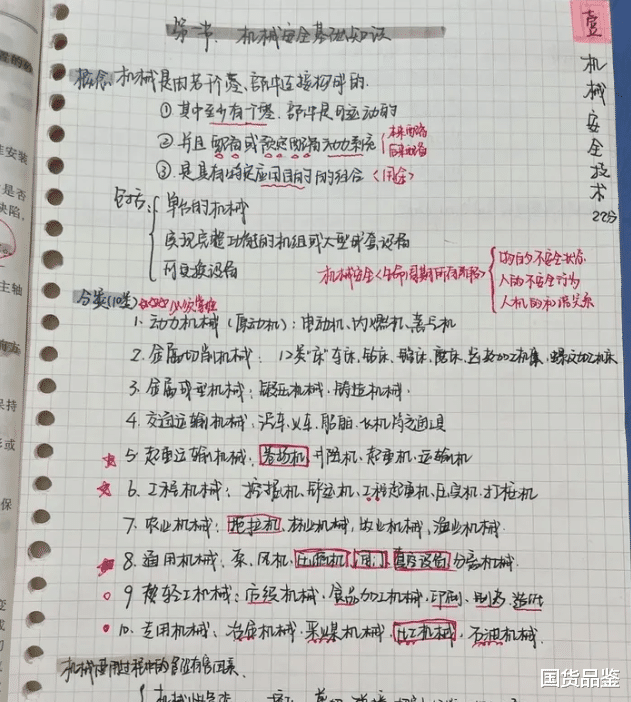 第一节、机械安全基础知识
壹
机械安全技术
22分
概念:机械是由若干个零、部件连接构成的.
①其中至少有一个零、部件是可运动的
②并且配备或预定配备动力系统
本来配备
后来配备
③是具有特定应用目的的组合 <用途>
包括:
单台的机械
实现完整功能的机组或大型成套设备
可更换设备
机械安全<生命周期所有阶段>
物的不安全状态
人的不安全行为
人机的和谐关系
分类(10类)
1. 动力机械(原动机): 电动机、内燃机、蒸汽机
2. 金属切削机械: 12类"床"车床、钻床、镗床、磨床、齿轮加工机床、螺纹加工机床
3. 金属成型机械: 锻压机械、铸造机械.
4. 交通运输机械: 汽车、火车、船舶、飞机等交通工具
5. 起重运输机械: 卷扬机 升降机、起重机、运输机
6. 工程机械: 挖掘机、铲运机、工程起重机、压实机、打桩机
7. 农业机械: 拖拉机、林业机械、牧业机械、渔业机械.
8. 通用机械: 泵、风机、压缩机 阀门 真空设备 分离机械.
9. 轻工机械: 纺织机械、食品加工机械、印刷、制药、造纸
10. 专用机械: 冶金机械、采煤机械、化工机械、石油机械.
机械使用过程中的危险有害因素.
国货品鉴
装
是否
缺陷,
主轴
保持
形或
保